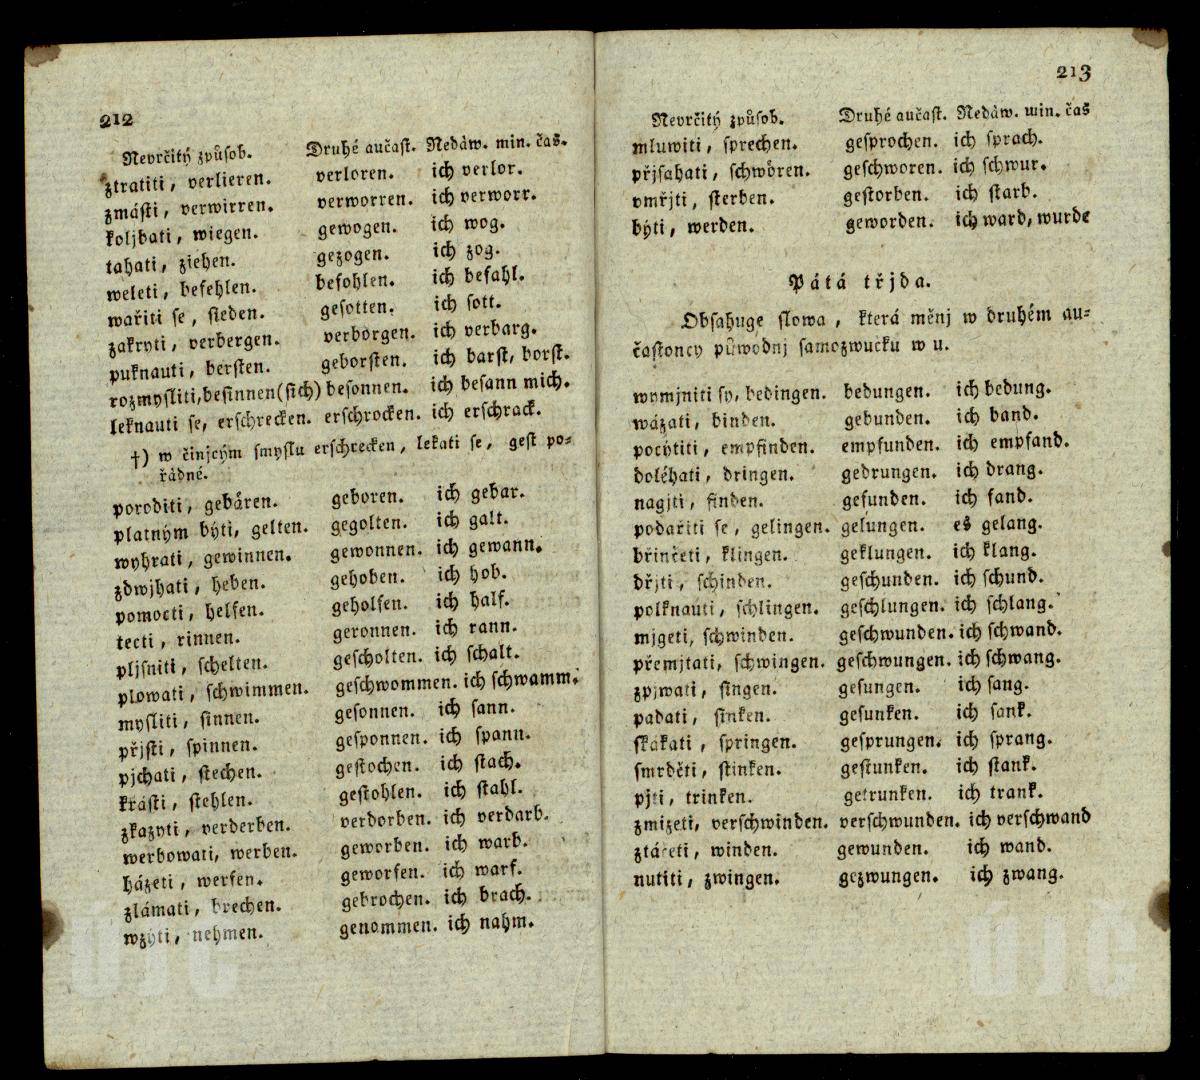 212
Nevrčitý způsob. Druhé aučast. Nedáw. min. čas.
ztratiti, verlieren. verloren. ich verlor.
zmásti, verwirren. verworren. ich verworr.
koljbati, wiegen. gewogen. ich wog.
tahati, ziehen. gezogen. ich zog.
weleti, befehlen. befohlen. ich befahl.
wařiti se, sieden. gesotten. ich sott.
zakryti, verbergen. verborgen. ich verbarg.
puknauti, bersten. geborsten. ich barst, borst.
rozmysliti, besinnen (sich) besonnen. ich besann mich.
leknauti se, erschrecken. erschrocken. ich erschrack.
†) w činjcým smyslu erschrecken, lekati se, gest po=
řádné.
poroditi, gebären. geboren. ich gebar.
platným býti, gelten. gegolten. ich galt.
wyhrati, gewinnen. gewonnen. ich gewann.
zdwjhati, heben. gehoben. ich hob.
pomocti, helfen. geholfen. ich half.
tecti, rinnen. geronnen. ich rann.
pljsniti, schelten. gescholten. ich schalt.
plowati, schwimmen. geschwommen. ich schwamm.
mysliti, sinnen. gesonnen. ich sann.
přjsti, spinnen. gesponnen. ich spann.
pjchati, stechen. gestochen. ich stach.
krásti, stehlen. gestohlen. ich stahl.
zkazyti, verderben. verdorben. ich verdarb.
werbowati, werben. geworben. ich warb.
házeti, werfen. geworfen. ich warf.
zlámati, brechen. gebrochen. ich brach.
wzýti, nehmen. genommen. ich nahm.
213
Nevrčitý způsob. Druhé aučast. Nedáw. min. čas
mluwiti, sprechen. gesprochen. ich sprach.
přjsahati, schwören. geschworen. ich schwur.
vmřjti, sterben. gestorben. ich starb.
býti, werden. geworden. ich ward, wurde
Pátá třjda.
Obsahuge slowa, která měnj w druhém au=
častoncy půwodnj samozwučku w u.
wymjniti sy, bedingen. bedungen. ich bedung.
wázati, binden. gebunden. ich band.
pocýtiti, empfinden. empfunden. ich empfand.
doléhati, dringen. gedrungen. ich drang.
nagjti, finden. gefunden. ich fand.
podařiti se, gelingen. gelungen. es gelang.
břinčeti, klingen. geklungen. ich klang.
dřjti, schinden. geschunden. ich schund.
polknauti, schlingen. geschlungen. ich schlang.
mjgeti, schwinden. geschwunden. ich schwand.
přemjtati, schwingen. geschwungen. ich schwang.
zpjwati, singen. gesungen. ich sang.
padati, sinken. gesunken. ich sank.
skákati, springen. gesprungen. ich sprang.
smrděti, stinken. gestunken. ich stank.
pjti, trinken. getrunken. ich trank.
zmizeti, verschwinden. verschwunden. ich verschwand
ztáčeti, winden. gewunden. ich wand.
nutiti, zwingen. gezwungen. ich zwang.
ÚJČ
ÚJČ